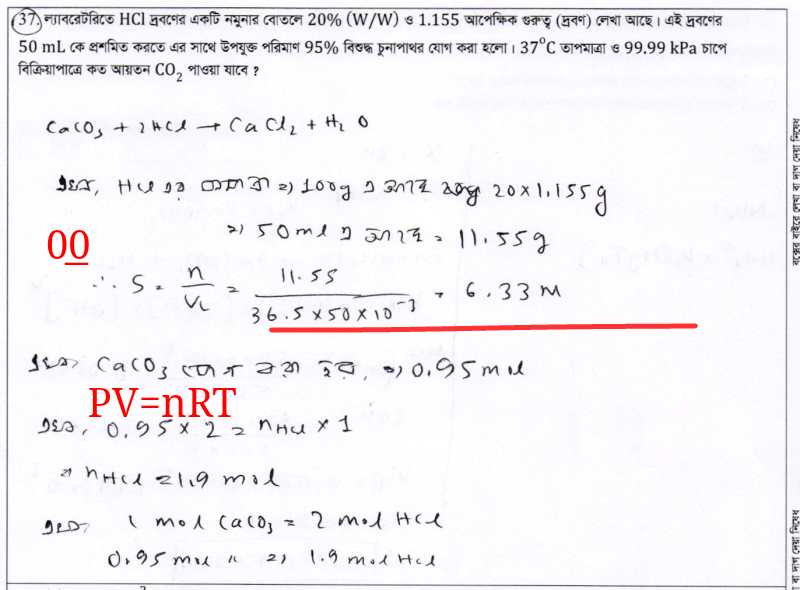 37. ল্যাবরেটরিতে HCl দ্রবণের একটি নমুনার বোতলে 20% (W/W) ও 1.155 আপেক্ষিক গুরুত্ব (দ্রবণ) লেখা আছে। এই দ্রবণের
50 mL কে প্রশমিত করতে এর সাথে উপযুক্ত পরিমাণ 95% বিশুদ্ধ চুনাপাথর যোগ করা হলো। 37°C তাপমাত্রা ও 99.99 kPa চাপে
বিক্রিয়াপাত্রে কত আয়তন CO₂ পাওয়া যাবে ?
CaCO₃ + 2HCl → CaCl₂ + H₂O
এখন, HCl এর ⇒ 100g এ আছে 20×1.155g
⇒ 50ml এ আছে = 11.55g
00
∴ S = n/VL = 11.55/(36.5×50×10⁻³) = 6.33 M
এখন, CaCO₃ যোগ করা হয়, ⇒ 0.95 mol
PV=nRT
এখন 0.95 × 2 = nHCl × 1
⇒ nHCl = 1.9 mol
এখন, 1 mol CaCO₃ = 2 mol HCl
0.95 mol " ⇒ 1.9 mol HCl
বক্সের বাইরে লেখা বা দাগ দেয়া নিষেধ